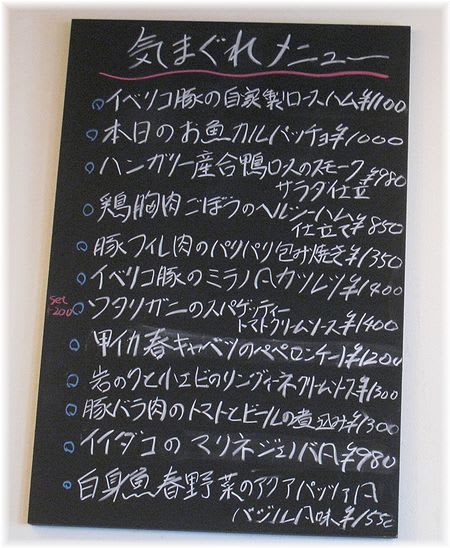 気まぐれメニュー
イベリコ豚の自家製ロースハム¥1100
本日のお魚カルパッチョ¥1000
ハンガリー産合鴨ロースのスモーク
サラダ仕立 ¥980
鶏胸肉ごぼうのヘルシーハム
仕立て¥850
豚フィレ肉のパリパリ包み焼き¥1350
イベリコ豚のミラノ風カツレツ¥1400
set
200
ワタリガニのスパゲッティー
トマトクリームソース¥1400
甲イカ春キャベツのペペロンチーノ¥1200
岩のりと小エビのリングィーネクリームソース¥1300
豚バラ肉のトマトとビールの煮込み¥1300
イイダコのマリネジェノバ風¥980
白身魚春野菜のアクアパッツァ風
バジル風味¥1550